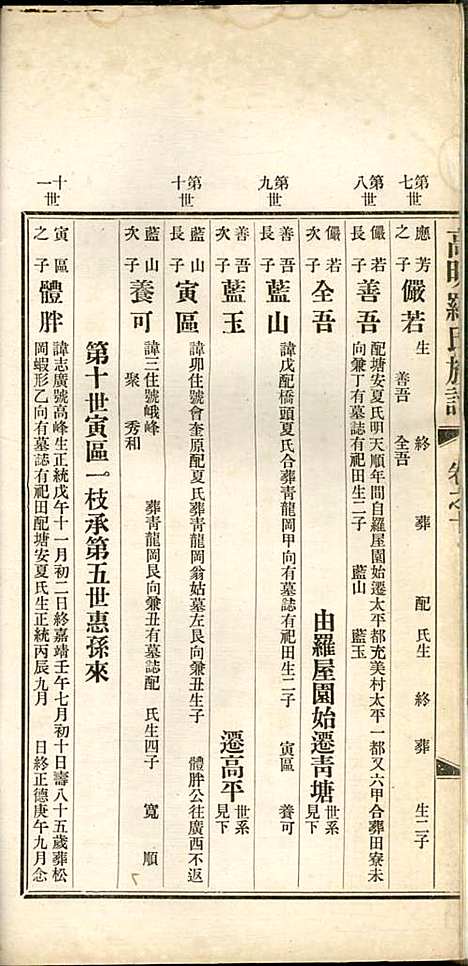 高明羅氏族譜 卷之十
第七世
應芳之子 儼若 生 終 葬 配 氏生 終 葬 生二子
善吾 全吾
第八世
儼若長子 善吾 配塘安夏氏明天順年間自羅屋園始遷太平都充美村太平一都又六甲合葬田寮未
向兼丁有墓誌有祀田生二子 藍山 藍玉
儼若次子 全吾 由羅屋園始遷青塘 世系見下
第九世
善吾長子 藍山 諱戊配橋頭夏氏合葬青龍岡甲向有墓誌有祀田生二子 寅區 養可
善吾次子 藍玉 遷高平 世系見下
第十世
藍山長子 寅區 諱卯住號會奎原配夏氏葬青龍岡翁姑墓左艮向兼丑生子 體胖公往廣西不返
藍山次子 養可 諱三住號峨峰 葬青龍岡艮向兼丑有墓誌配 氏生四子 寬 順
聚 秀和
第十世寅區一枝承第五世惠孫來
十一世
寅區之子 體胖 諱志廣號高峰生正統戊午十一月初二日終嘉靖壬午七月初十日壽八十五歲葬松
岡蝦形乙向有墓誌有祀田配塘安夏氏生正統丙辰九月 日終正德庚午九月念